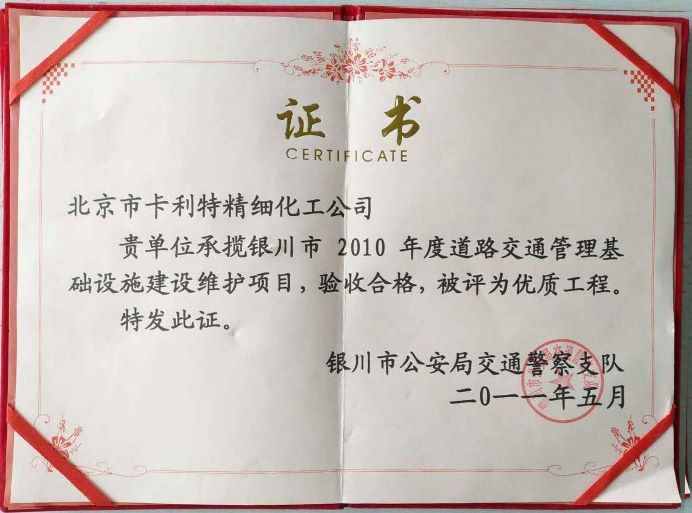 证书
CERTIFICATE
北京市卡利特精细化工公司
贵单位承揽银川市 2010 年度道路交通管理基
础设施建设维护项目，验收合格，被评为优质工程。
特发此证。
银川市公安局交通警察支队
二〇一一年五月